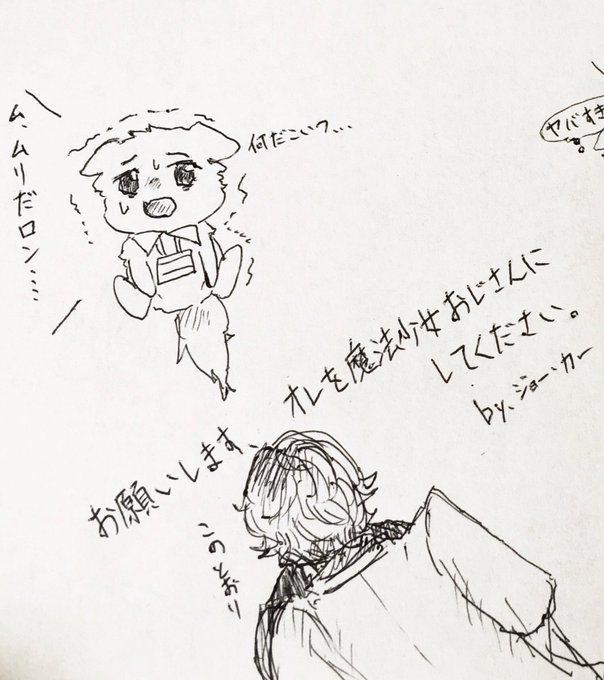 ム、ムリだロン……
何だこいつ、、、
ヤバすき
オレを魔法少女おじさんに
してください。
by、ジョー・カー
お願いします、
このとおり